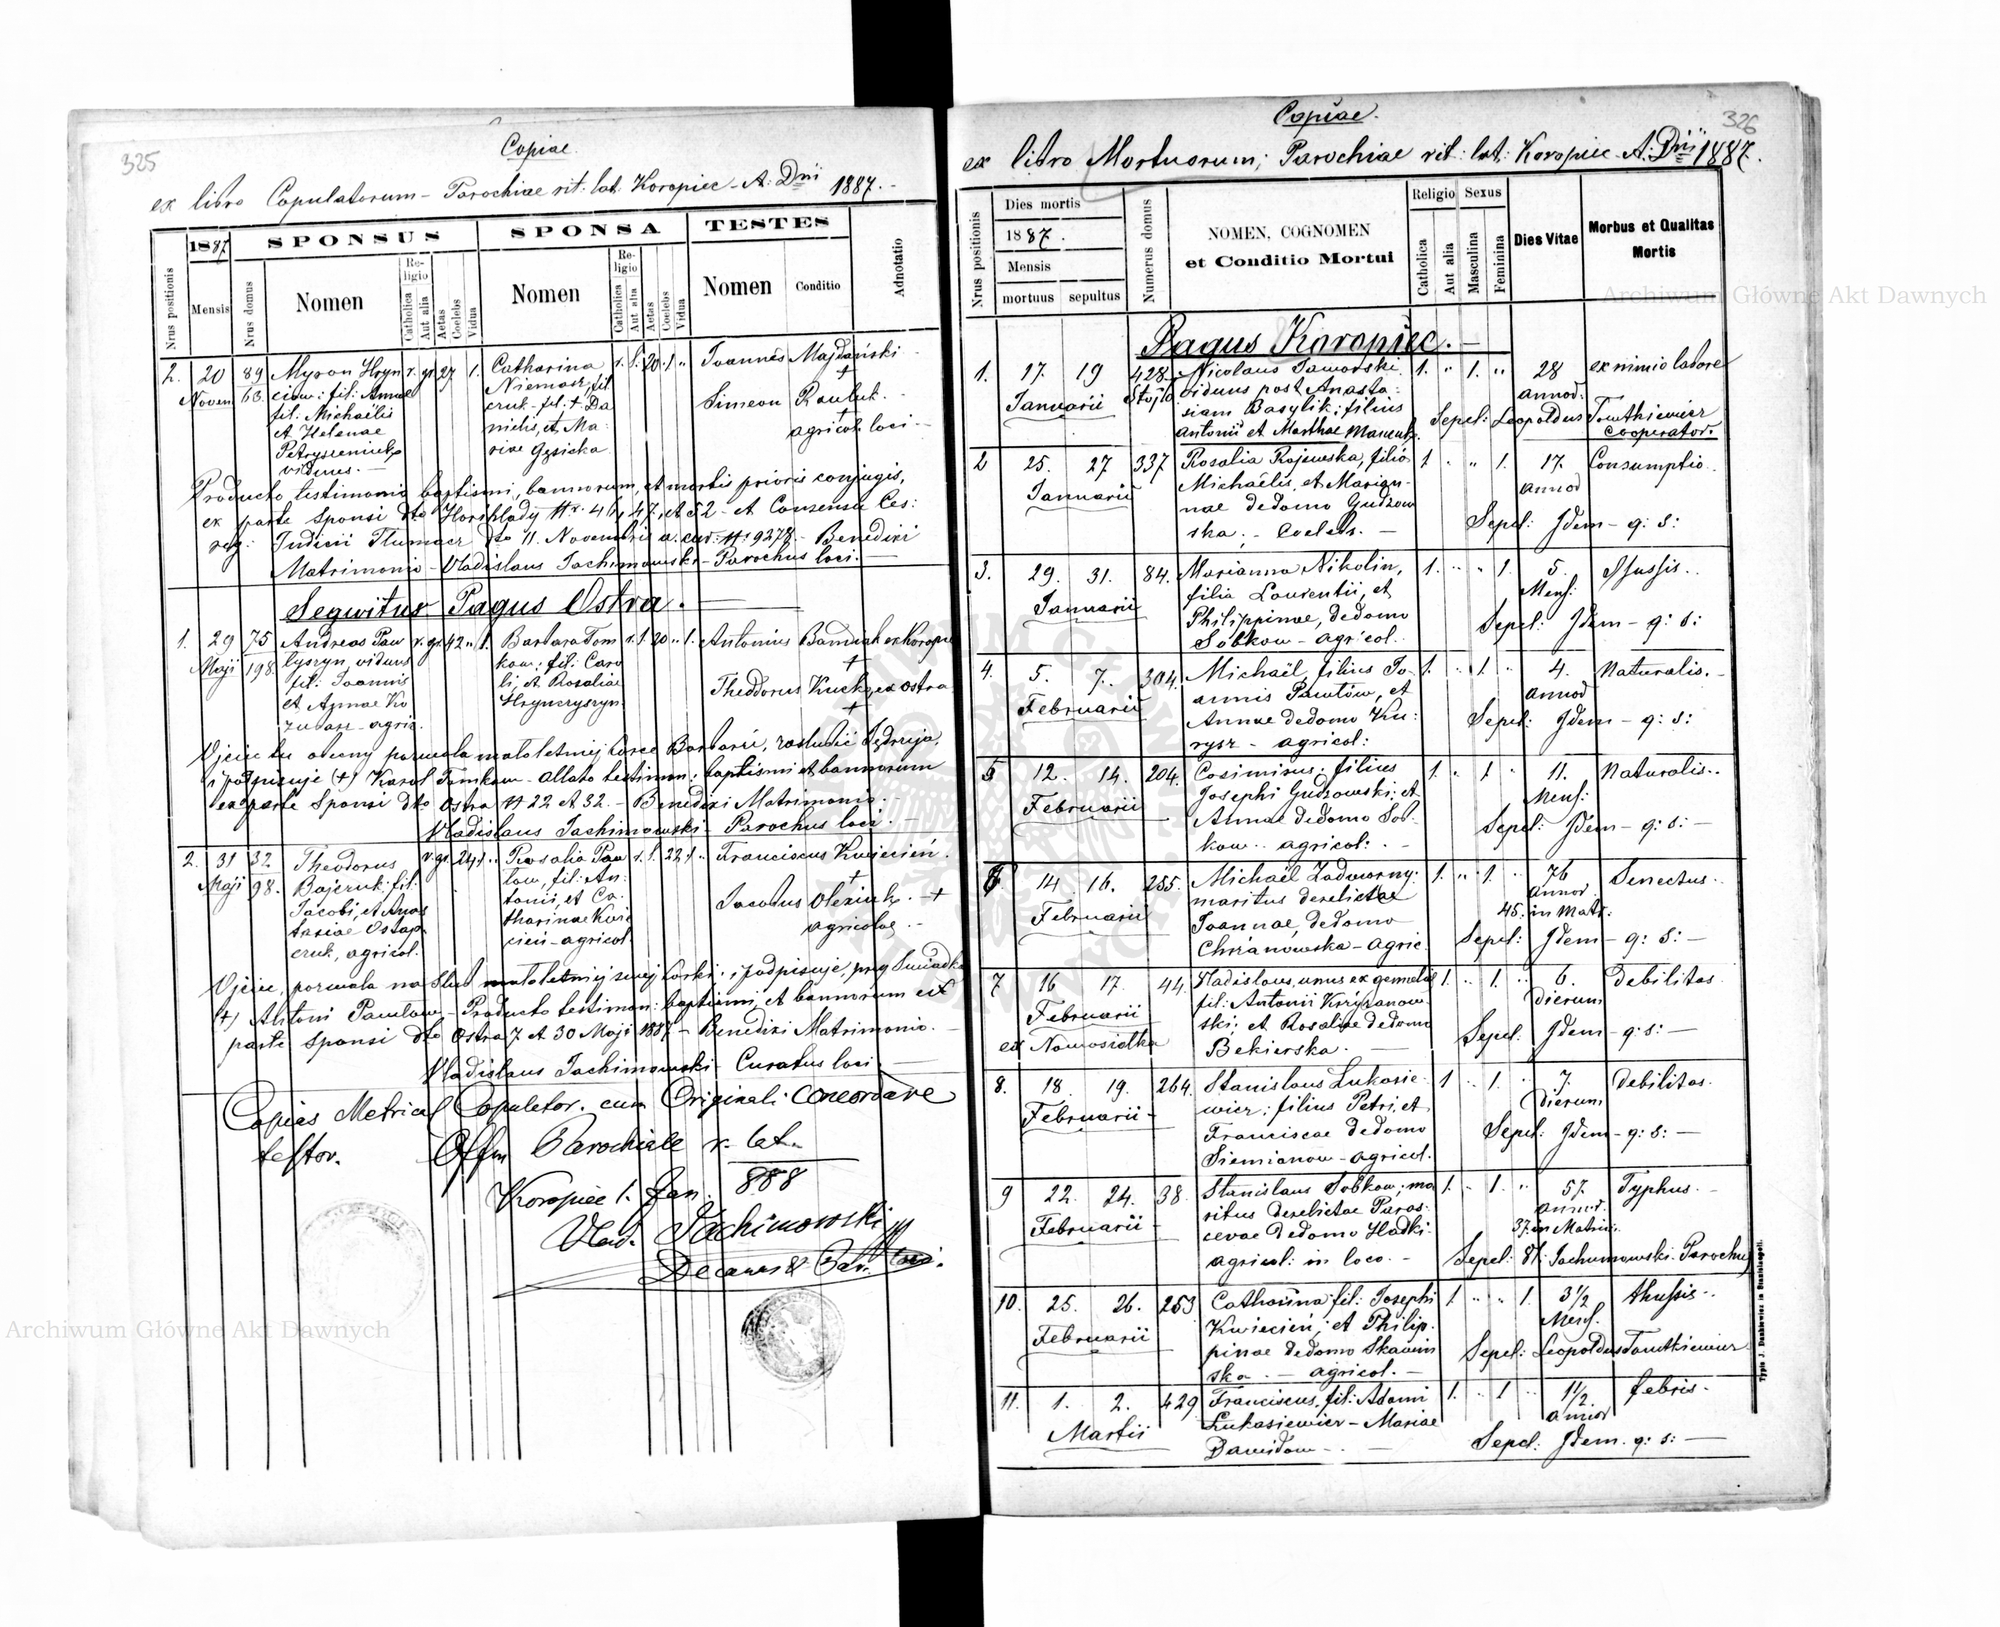 325
Copiae.
ex libro Copulatorum – Parochiae rit: lat. Koropiec – A: Dnii 1887. –
Nrus positionis
1887
Mensis
Nrus domus
SPONSUS
Nomen
Religio
Catholica
Aut alia
Aetas
Coelebs
Vidua
SPONSA
Nomen
Religio
Catholica
Aut alia
Aetas
Coelebs
Vidua
TESTES
Nomen
Conditio
Adnotatio
2. 20 89 Myron Hryn r. gr. 27 1. Catharina r. l. 20 1 " Joannes Majdański –
Novem 63. fil: Annae Niemasz, fil +
fil: Michaëlis fil: + Da Simeon –
et Helenae nielis, et Ma: +
riae Gęsicka agricol. loci –
viduus. –
Producto testimonio baptismi, bannorum, et mortis prioris conjugis,
ex parte Sponsi dto Nr. 46, 47, et 52 – et Consensu Ces:
reg: Judicii Tłumacz dto 11. Novembris a. cur: N: 9278. – Benedixi
Matrimonio – Vladislaus Jachimowski – Parochus loci. –
Sequitur Pagus Ostra. –
1. 29 75 Andreas Paw r. gr. 42 " 1. Barbara Tom r. l. 20 " 1. Antonius ex Korop
Maji 198. łyszyn, viduus kow: fil: Caro +
fil: Joannis li, et Rosaliae Theodorus Kuck, ex Ostra
et Annae Ko +
agric.
Ojciec tu obecny pozwala małoletniej córce Barbarze,
i podpisuje (+) Karol Tomkow – allato testimon: baptismi et bannorum
ex parte Sponsi dto Ostra N 22 et 32. – Benedixi Matrimonio. –
Vladislaus Jachimowski – Parochus loci. –
2. 31 32. Theodorus r. gr. 24 1 " Rosalia Paw r. l. 22 1 " Franciscus Kwiecień.
Maji 98. Bojczuk: fil: tow, fil: An: +
Jacobi, et Anas tonii, et Ca: Jacobus +
tasiae Ostap tharinae Kwie agricolae. –
czuk, agricol. cień – agricol.
Ojciec, pozwala na ślub małoletniej swej córki, i podpisuje, przy Świadk
(+) Antoni Pawłow – Producto testimon: baptismi, et bannorum ex
parte Sponsi dto Ostra 7 et 30 Maji 1887 – Benedixi Matrimonio. –
Vladislaus Jachimowski – Curatus loci. –
Copias Metrical Copulator. cum Originali concordare
testor. Offm Parochiale r. lat.
Koropiec 1. Jan. 888
Vlad. Jachimowski
Decanus & Par. loci.
326
Copiae.
ex libro Mortuorum; Parochiae rit: lat: Koropiec A. Dnii 1887.
Nrus positionis
Dies mortis
1887.
Mensis
mortuus
sepultus
Numerus domus
NOMEN, COGNOMEN
et Conditio Mortui
Religio
Catholica
Aut alia
Sexus
Masculina
Feminina
Dies Vitae
Morbus et Qualitas
Mortis
Pagus Koropiec. –
1. 17. 19 428 Nicolaus Jaworski 1. " 1. " 28 ex nimio labore
Januarii viduus post Anasta: annor.
siam Basylik; filius Sepel: Leopoldus
Antonii et Marthae Cooperator.
2 25. 27 337 Rosalia Rajewska, filia 1 " " 1. 17. Consumptio.
Januarii Michaëlis, et Marian- annor
nae de domo Gudzow Sepel: Idem – q: s:
ska; – Coelebs. –
3. 29. 31. 84. Marianna Nikolin, 1. " " 1. 5. Thussis..
Januarii filia Laurentii, et Mens:
Philippinae, de domo Sepel: Idem – q: s:
Sobkow – agricol.
4. 5. 7. 304. Michaël, filius Jo- 1. " 1 " 4. Naturalis. –
Februarii annis Pawłów, et annor
Annae de domo Ku: Sepel: Idem – q: s:
rysz – agricol:
5 12. 14. 204. Casimirus; filius 1. " 1 " 11. Naturalis..
Februarii Josephi Gudzowski; et Mens:
Annae de domo Sob- Sepel: Idem – q: s: –
kow.. agricol: –
6 14. 16. 255. Michaël Zadworny; 1. " 1. " 76 Senectus..
Februarii maritus derelictae annor.
Joannae, de domo 45. in Matr:
Chrzanowska – agric. Sepel: Idem – q: s: –
7 16 17. 44. Vladislaus, unus ex gemelis 1. " 1. " 6. Debilitas.
Februarii fil: Antonii Krzyżanow- Dierum
ski; et Rosaliae de domo Sepel: Idem – q: s: –
ex Nowosiółka Bekierska. –
8. 18. 19. 264. Stanislaus Łukasie- 1 " 1. " 7. Debilitas.
Februarii – wicz; filius Petri, et Dierum
Franciscae de domo Sepel: Idem – q: s: –
Siemianow – agricol.
9 22. 24. 38. Stanislaus Sobkow; ma 1. " 1. " 57. Typhus. –
Februarii – ritus derelictae Paras- annor.
cevae de domo Hładki. 37. in Matrim:
agricol: in loco. – Sepel: Vl: Jachimowski. Parochus
10. 25. 26. 253 Catharina fil: Josephi 1. " " 1. 3 1/2 thussis..
Februarii Kwiecień; et Philip- Mens.
pinae de domo Skawin Sepel: Leopoldus
ska. – agricol. –
11. 1. 2. 429 Franciscus, fil: Adami 1. " 1 " 1 1/2 febris –
Martii Łukasiewicz – Mariae annor
Dawidow – – Sepel: Idem. q: s: –
Typis J. Dankiewicz in Stanislaopoli.
Archiwum Główne Akt Dawnych
Archiwum Główne Akt Dawnych